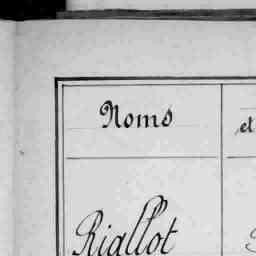 Noms
et
Riallot